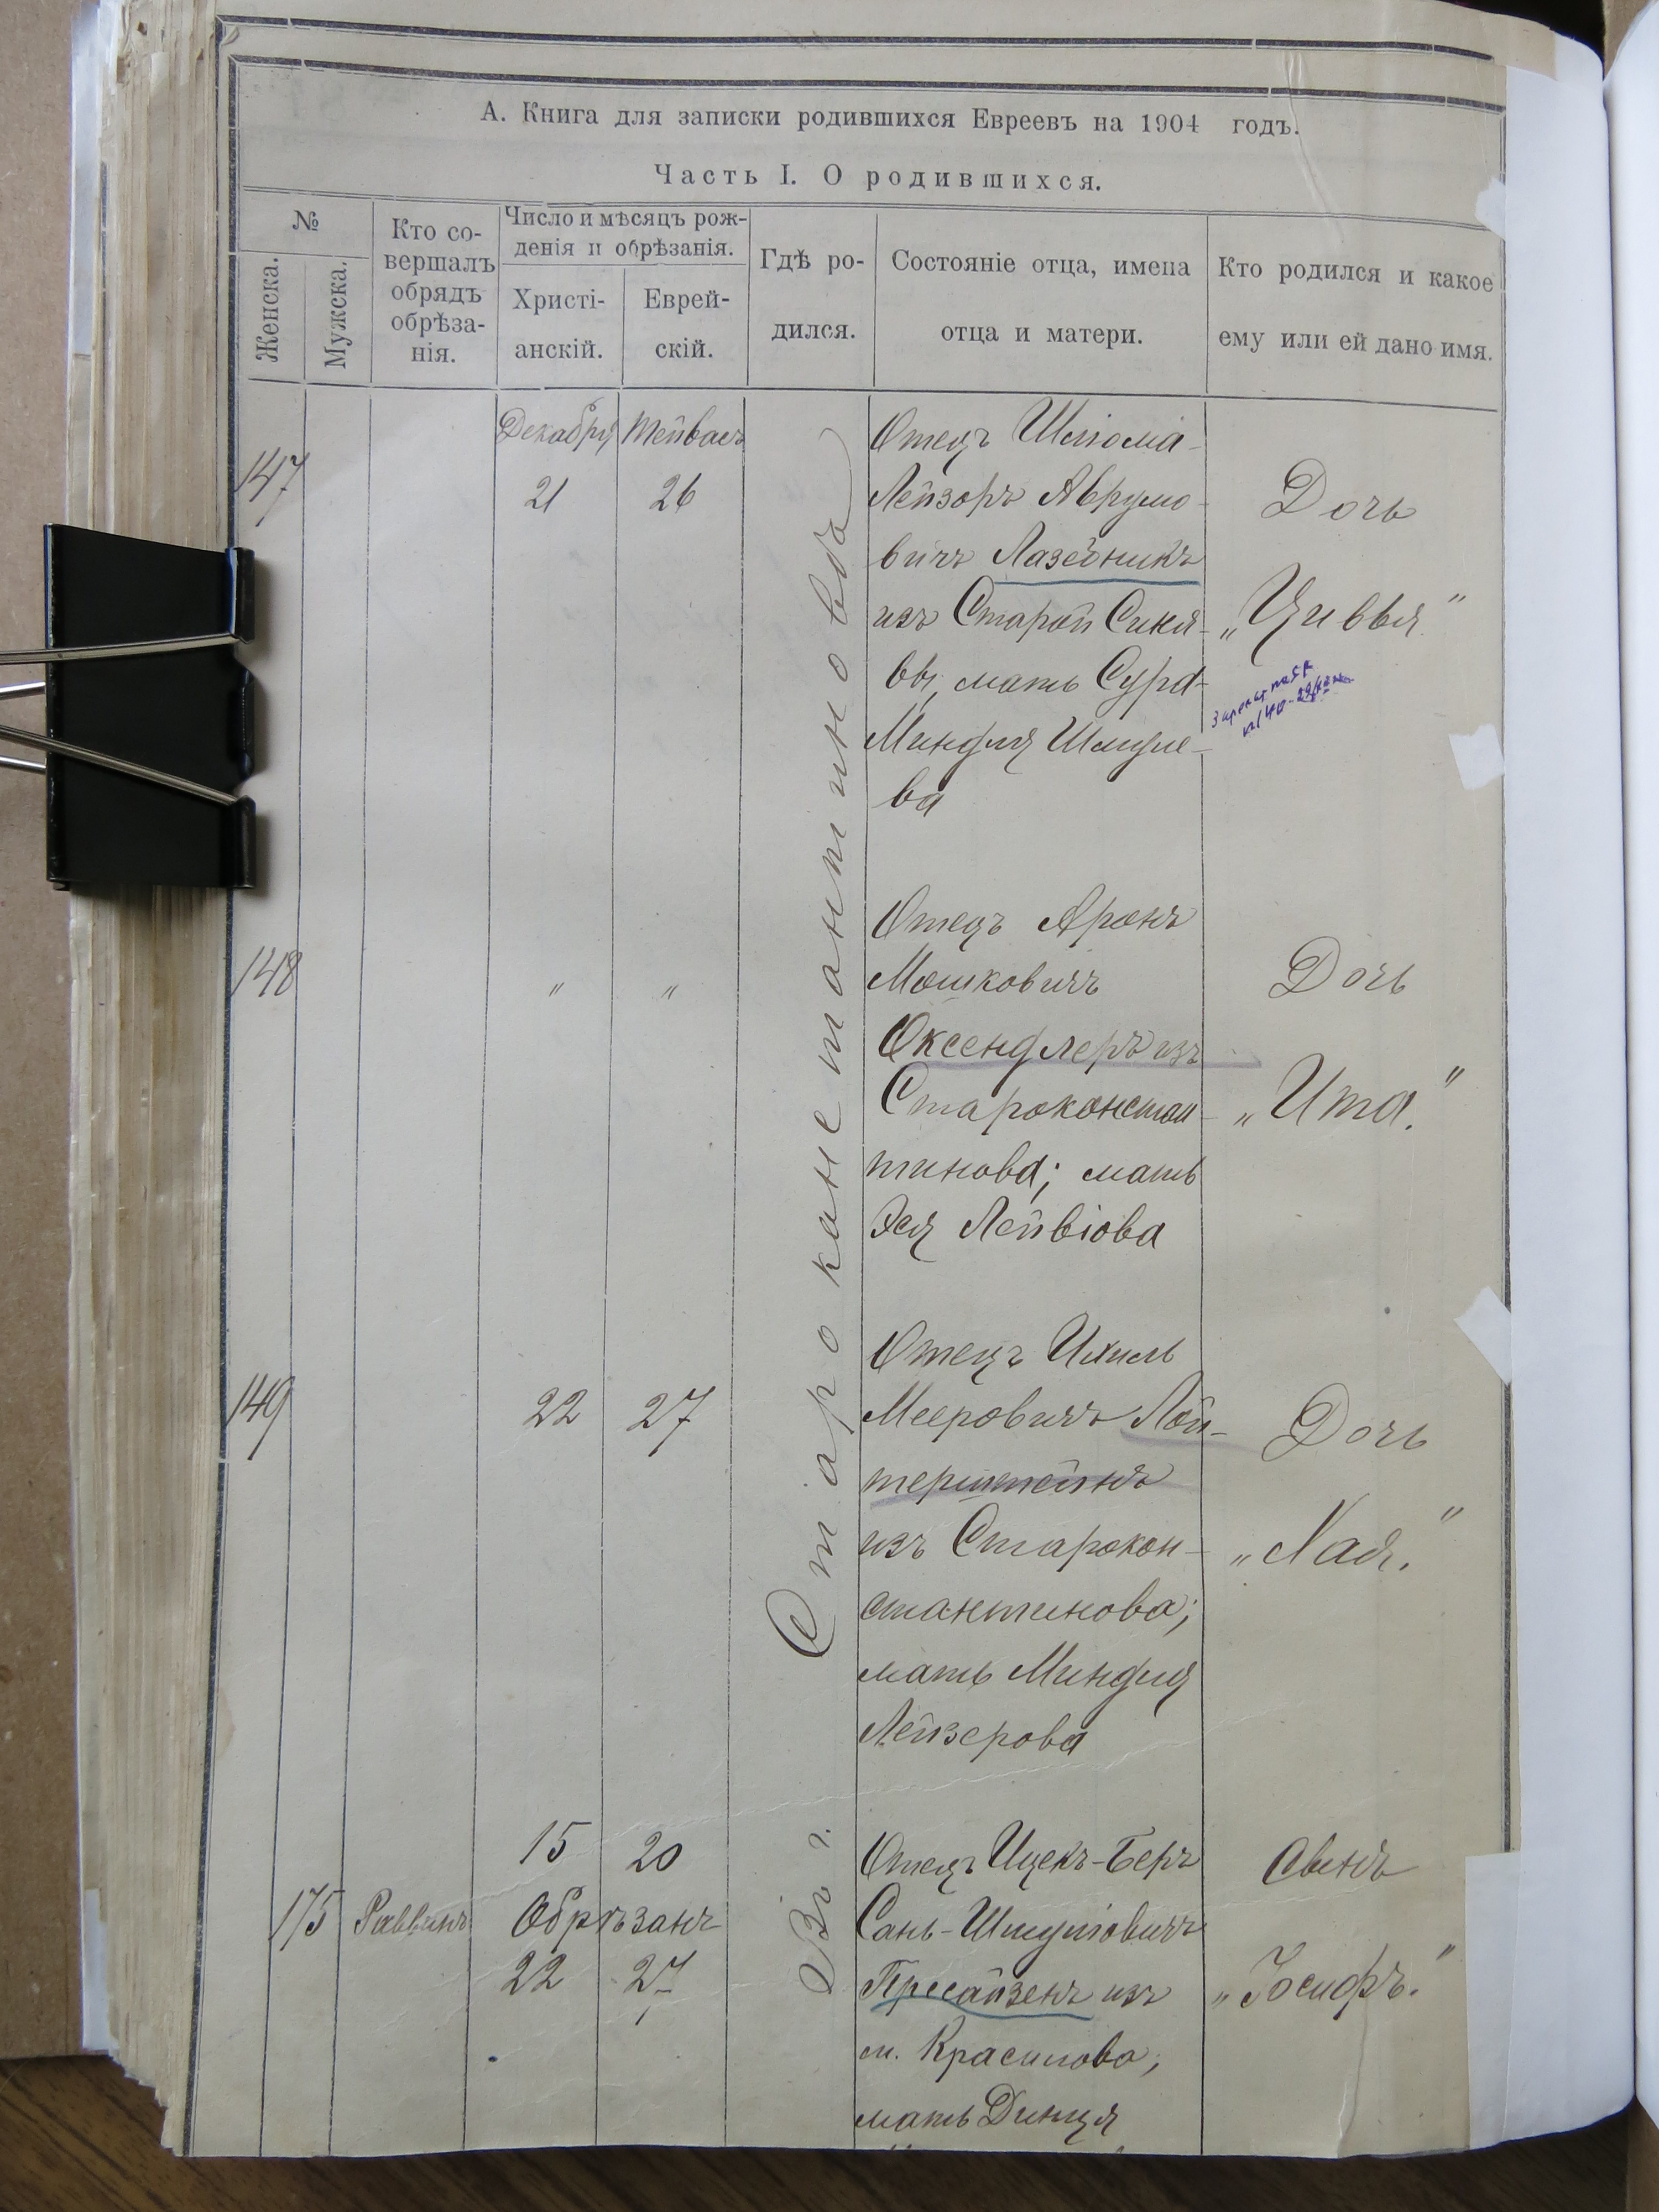 А. Книга для записки родившихся Евреевъ на 1904 годъ.
Часть I. О родившихся.
№
Женска.
Мужска.
Кто со-
вершалъ
обрядъ
обрѣза-
нія.
Число и мѣсяцъ рож-
денія и обрѣзанія.
Христі-
анскій.
Еврей-
скій.
Гдѣ ро-
дился.
Состояніе отца, имена
отца и матери.
Кто родился и какое
ему или ей дано имя.
Въ г. Староконстантиновѣ
147
Декабря Тейвасъ
21 26
Отецъ Шліома-
Лейзоръ Аврумо-
вичъ Лазебникъ
изъ Старой Синя-
вы, мать Сура-
Миндля Шмуле-
ва
Дочь
„Цивья"
148
" "
Отецъ Аронъ
Мошковичъ
Оксендлеръ изъ
Староконстан-
тинова; мать
Эся Лейвіова
Дочь
„Ита."
149
22 27
Отецъ Ихиль
Мееровичъ Лой-
терштейнъ
изъ Старокон-
стантинова;
мать Миндля
Лейзерова
Дочь
„Хая."
175
Раввинъ
15 20
Обрѣзанъ
22 27
Отецъ Ицекъ-Беръ
Сань-Шмуліовичъ
изъ
м. Красилова;
мать Динця
Сынъ
„Іосифъ."